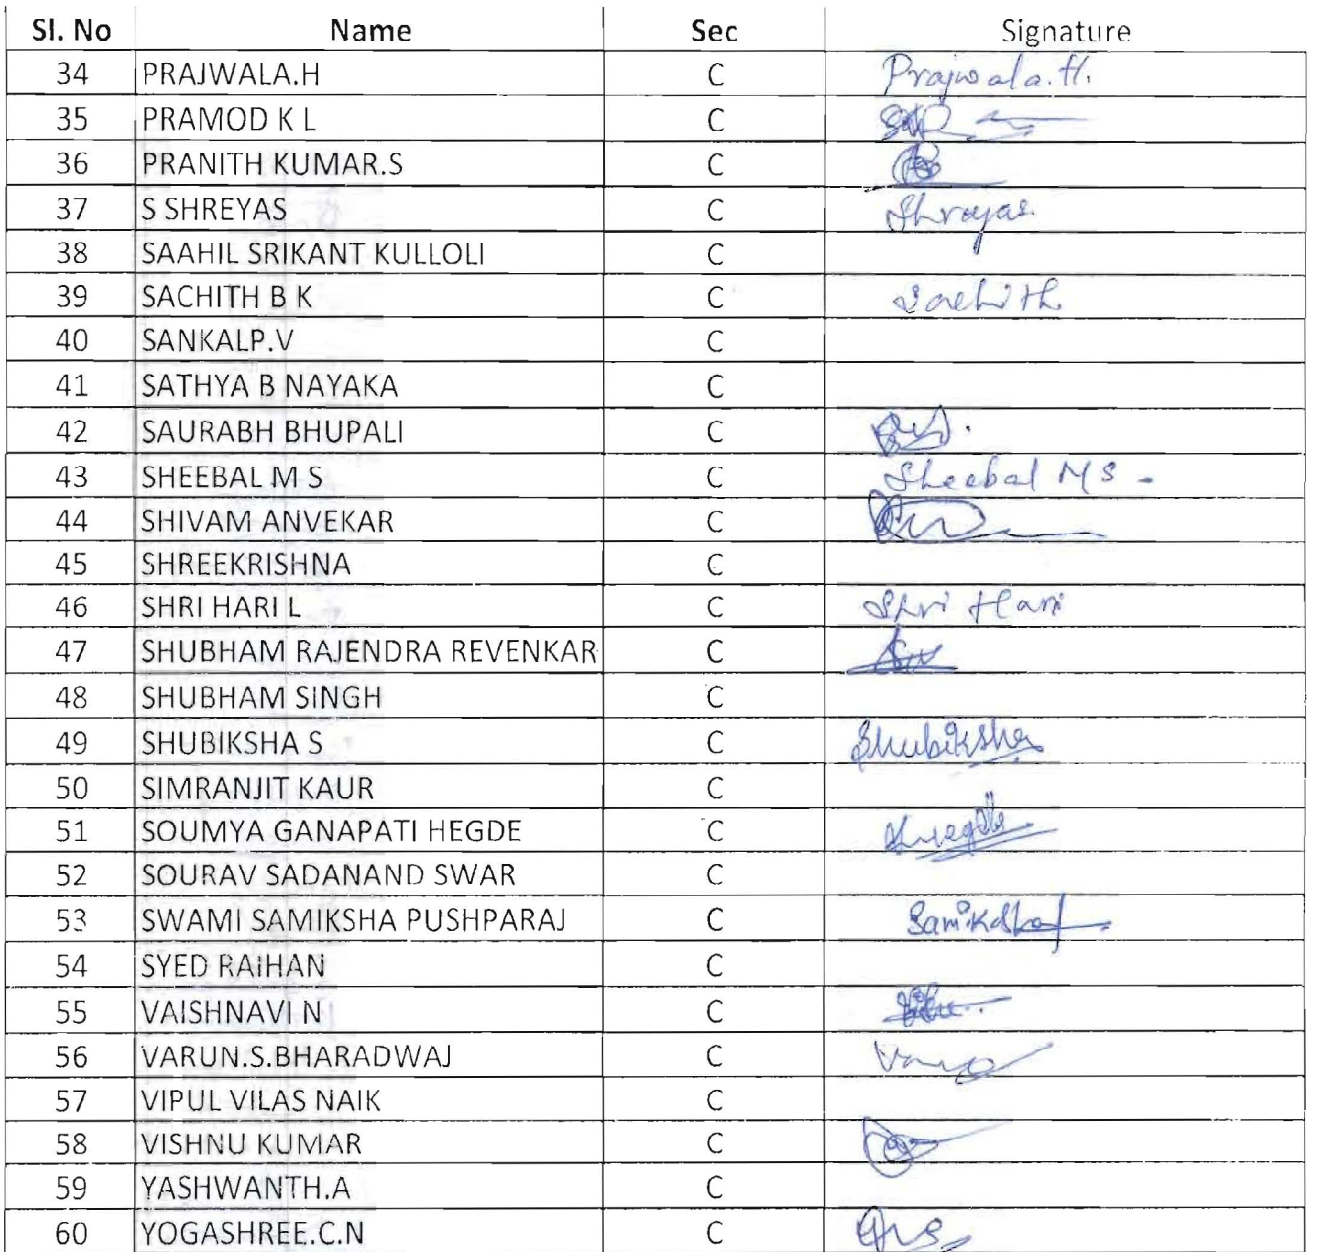 Sl. No Name Sec Signature
34 PRAJWALA.H C Prajwala.H.
35 PRAMOD K L C
36 PRANITH KUMAR.S C
37 S SHREYAS C Shreyas.
38 SAAHIL SRIKANT KULLOLI C
39 SACHITH B K C Sachith
40 SANKALP.V C
41 SATHYA B NAYAKA C
42 SAURABH BHUPALI C
43 SHEEBAL M S C Sheebal M S -
44 SHIVAM ANVEKAR C
45 SHREEKRISHNA C
46 SHRI HARI L C Shri Hari
47 SHUBHAM RAJENDRA REVENKAR C
48 SHUBHAM SINGH C
49 SHUBIKSHA S C Shubiksha
50 SIMRANJIT KAUR C
51 SOUMYA GANAPATI HEGDE C
52 SOURAV SADANAND SWAR C
53 SWAMI SAMIKSHA PUSHPARAJ C Samiksha
54 SYED RAIHAN C
55 VAISHNAVI N C
56 VARUN.S.BHARADWAJ C
57 VIPUL VILAS NAIK C
58 VISHNU KUMAR C
59 YASHWANTH.A C
60 YOGASHREE.C.N C